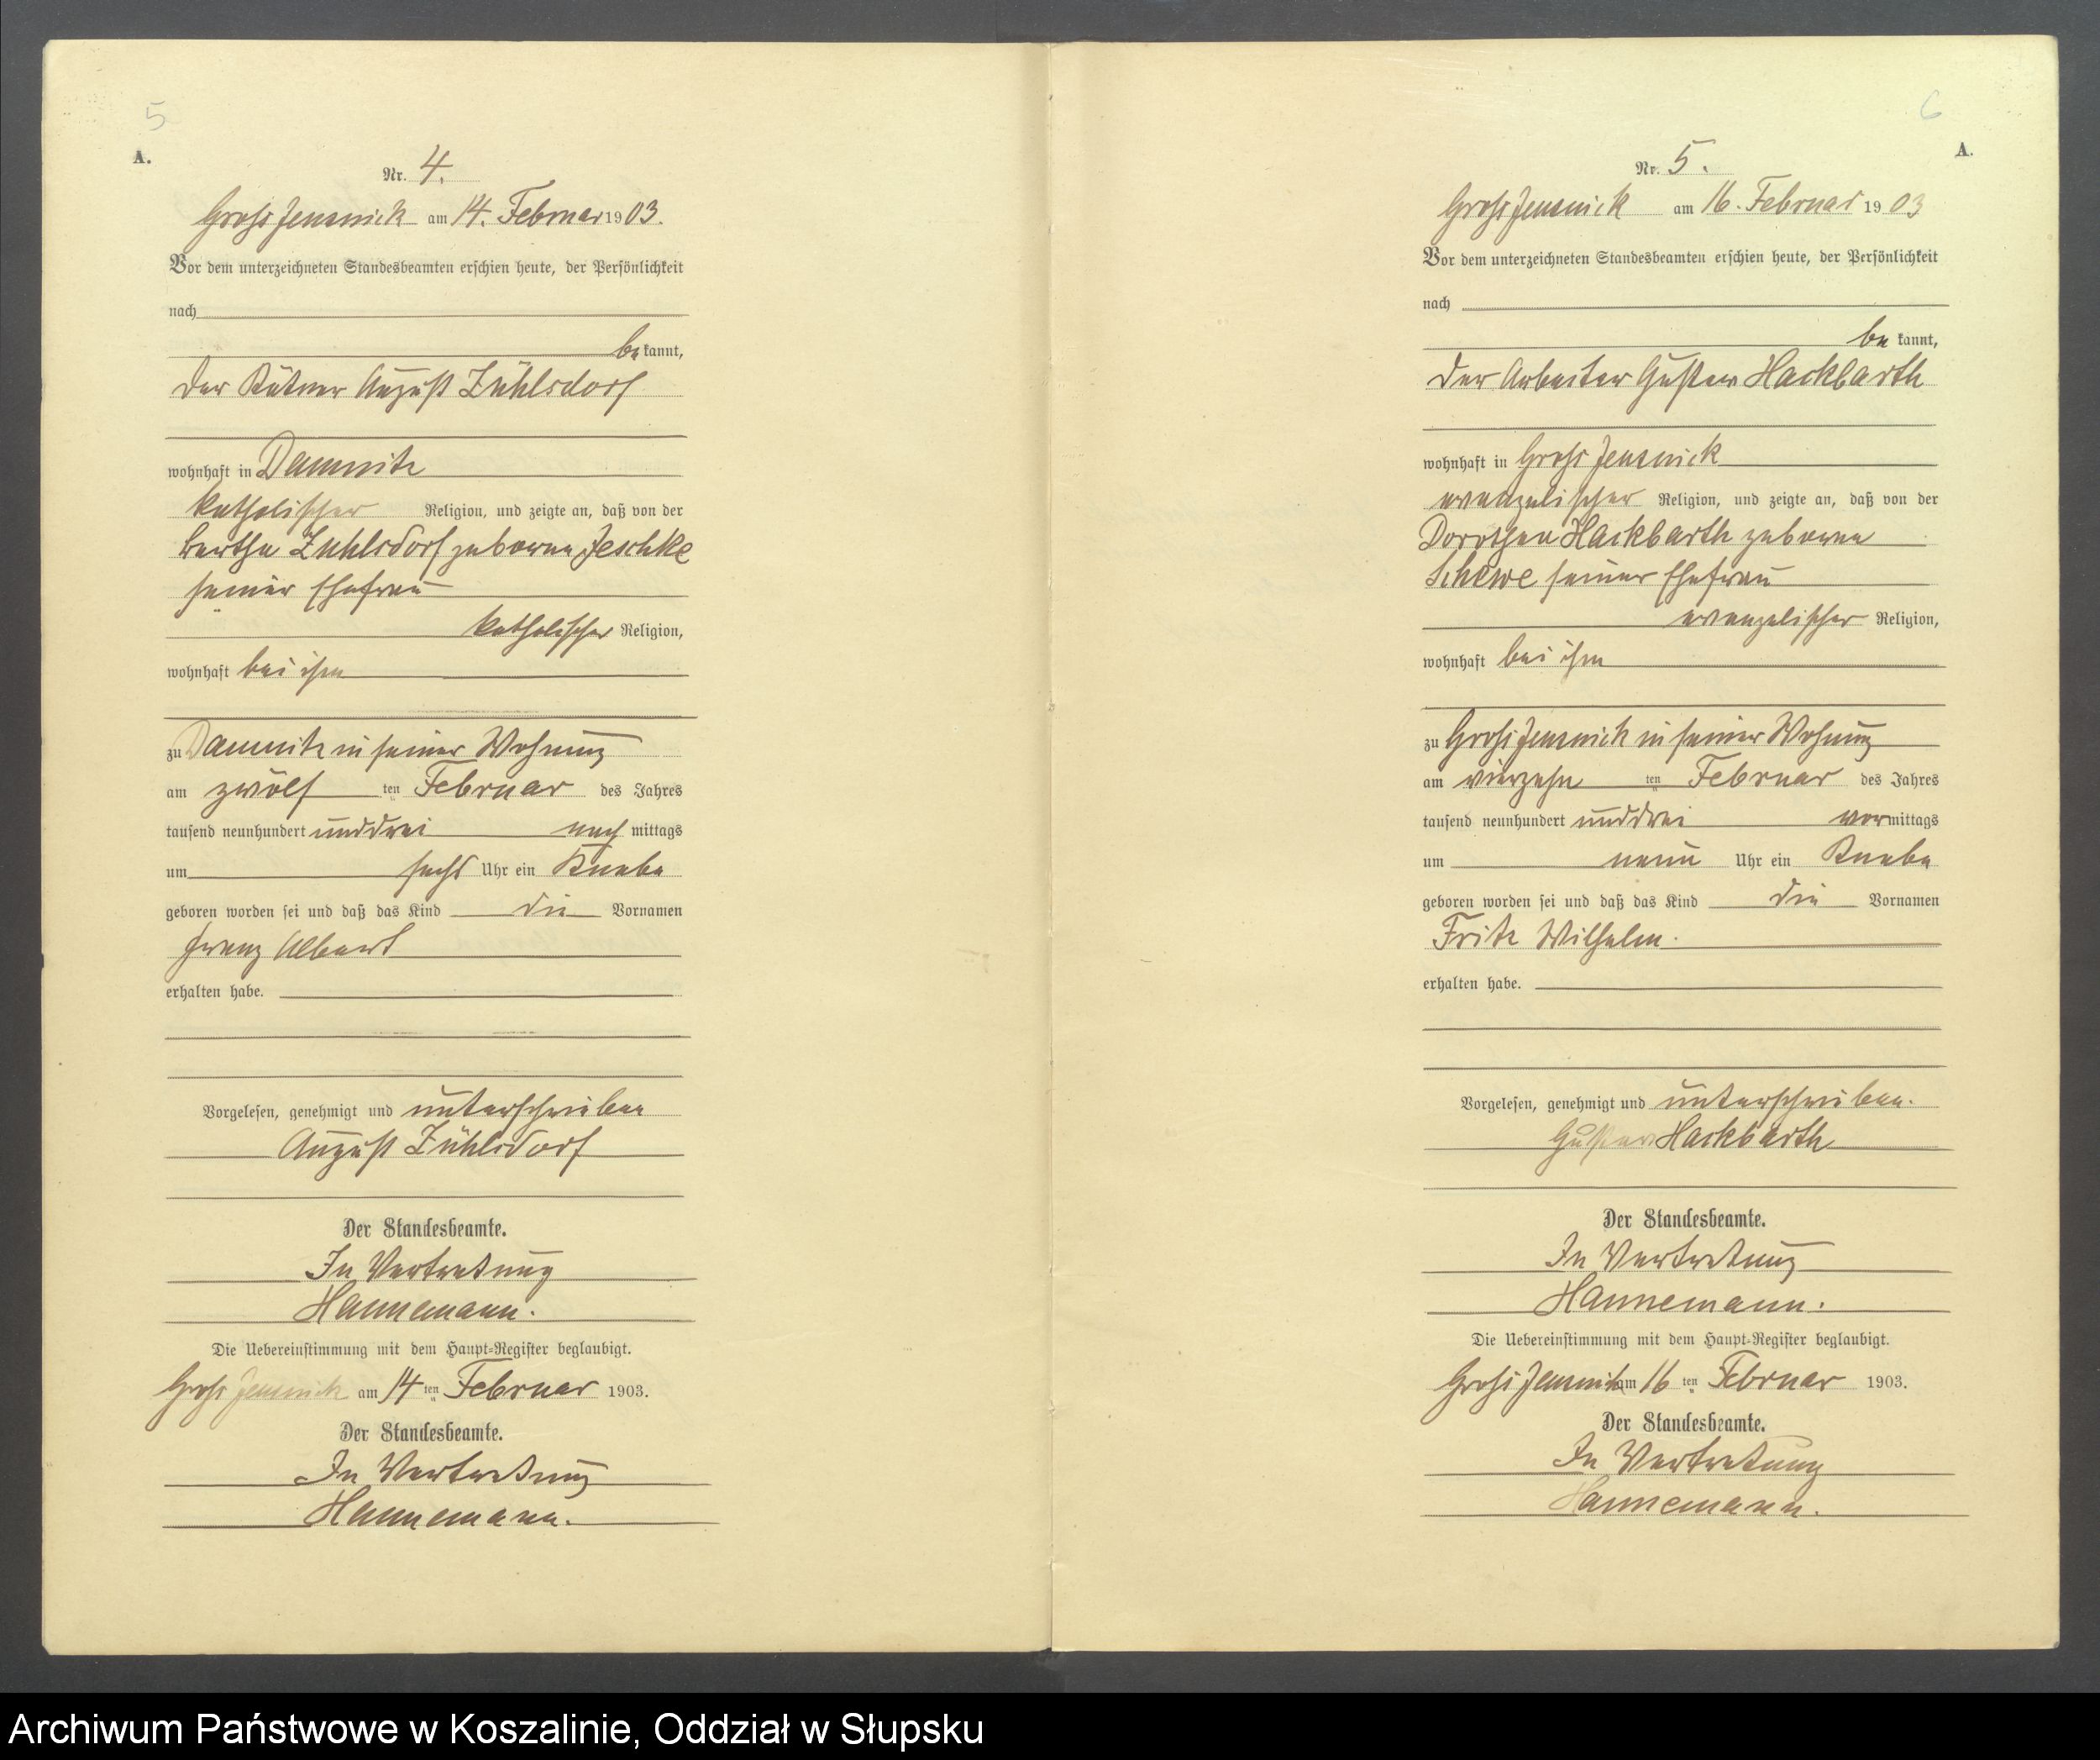 5
A.
Nr. 4.
Groß Jenznick am 14. Februar 1903.
Vor dem unterzeichneten Standesbeamten erschien heute, der Persönlichkeit
nach
bekannt,
der Kätner August Zühlsdorf
wohnhaft in Damnitz
katholischer Religion, und zeigte an, daß von der
Bertha Zühlsdorf geborene Jeschke
seiner Ehefrau
katholischer Religion,
wohnhaft bei ihm
zu Damnitz in seiner Wohnung
am zwölf ten Februar des Jahres
tausend neunhundert unddrei nachmittags
um sechs Uhr ein Knabe
geboren worden sei und daß das Kind die Vornamen
Franz Albert
erhalten habe.
Vorgelesen, genehmigt und unterschrieben
August Zühlsdorf
Der Standesbeamte.
In Vertretung
Hannemann.
Die Uebereinstimmung mit dem Haupt-Register beglaubigt.
Groß Jenznick am 14 ten Februar 1903.
Der Standesbeamte.
In Vertretung
Hannemann.
6
A.
Nr. 5.
Groß Jenznick am 16. Februar 1903
Vor dem unterzeichneten Standesbeamten erschien heute, der Persönlichkeit
nach
bekannt,
der Arbeiter Gustav Hackbarth
wohnhaft in Groß Jenznick
evangelischer Religion, und zeigte an, daß von der
Dorothea Hackbarth geborene
Schewe seiner Ehefrau
evangelischer Religion,
wohnhaft bei ihm
zu Groß Jenznick in seiner Wohnung
am vierzehn ten Februar des Jahres
tausend neunhundert unddrei vormittags
um neun Uhr ein Knabe
geboren worden sei und daß das Kind die Vornamen
Fritz Wilhelm.
erhalten habe.
Vorgelesen, genehmigt und unterschrieben.
Gustav Hackbarth
Der Standesbeamte.
In Vertretung
Hannemann.
Die Uebereinstimmung mit dem Haupt-Register beglaubigt.
Groß Jenznick am 16 ten Februar 1903.
Der Standesbeamte.
In Vertretung
Hannemann.
Archiwum Państwowe w Koszalinie, Oddział w Słupsku